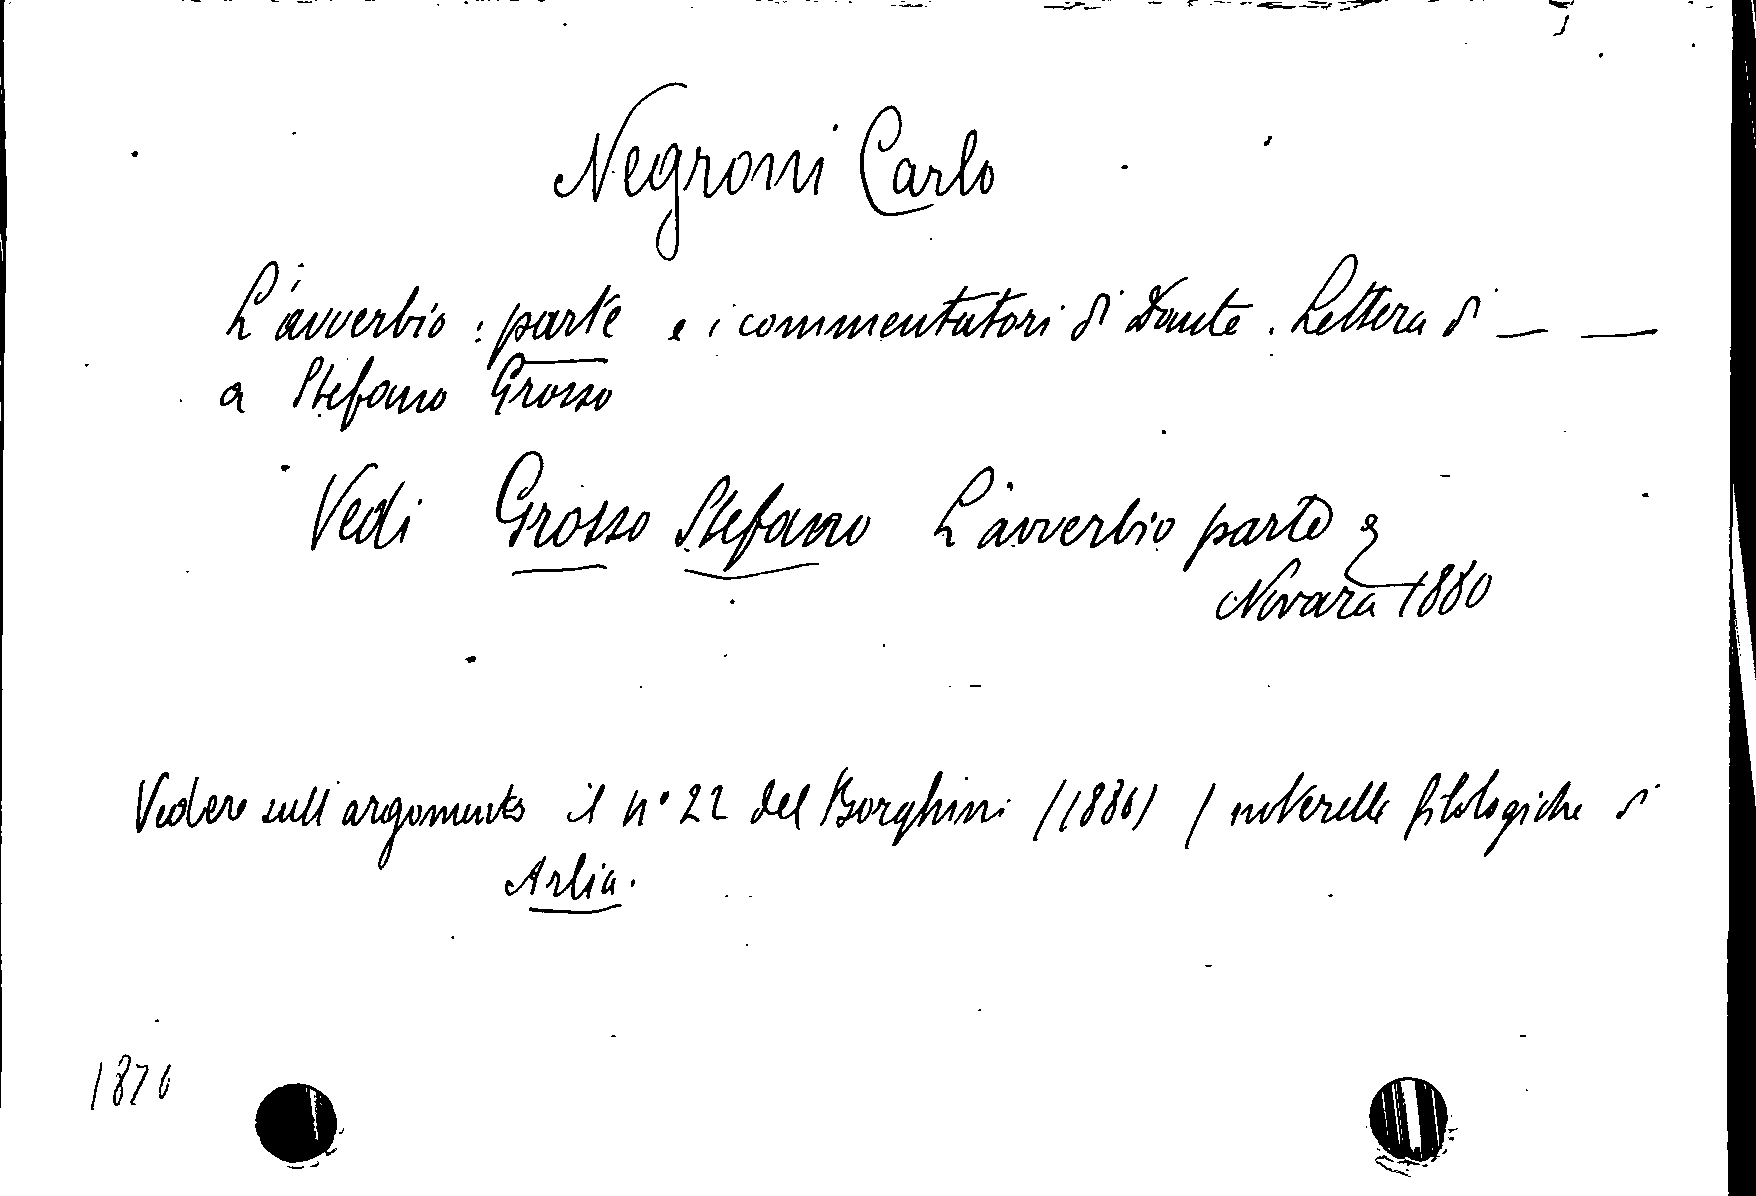 Negroni Carlo
L'avverbio: parte e i commentatori di Dante. Lettera di — —
a Stefano Grosso
Vedi Grosso Stefano L'avverbio parte &
Novara 1880
Vedere sull'argomento il n° 22 del Borghini (1880) / noterelle filologiche di
Arlia.
1870